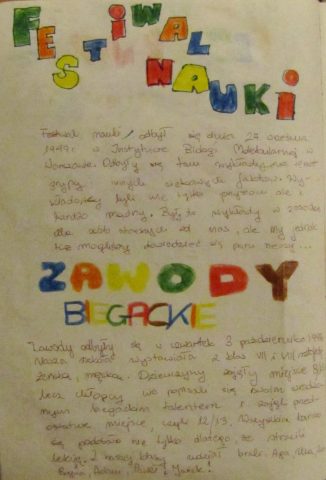 FESTIWAL
NAUKI
Festiwal nauki odbył się dnia 27 września
1997r w Instytucie Biologi Molekularnej w
Warszawie. Odbyły się tam wykłady na temat
grypy innych ciekawych faktów. Wy-
kładowcy byli nie tylko przyjaźni ale i
bardzo mądrzy. Były to wykłady w zasadzie
dla osób starszych od nas, ale my jednak
też mogliśmy dowiedzieć się paru rzeczy...
ZAWODY
BIEGACKIE
Zawody odbyły się w czwartek 3 października
Nasza szkoła wystawiała z klas VII i VIII
żeńska, męska. Dziewczyny zajęły miejsce
lecz chłopcy nie popisali się swoim
mym biegackim talentem i zajęli przed-
ostatnie miejsce, czyli 12/13. Wszystkim bardzo
się podobało nie tylko dlatego, że stracili
lekcje. Z naszej klasy udział brali: Aga, Ola,
Adam, Paweł i Jacek!